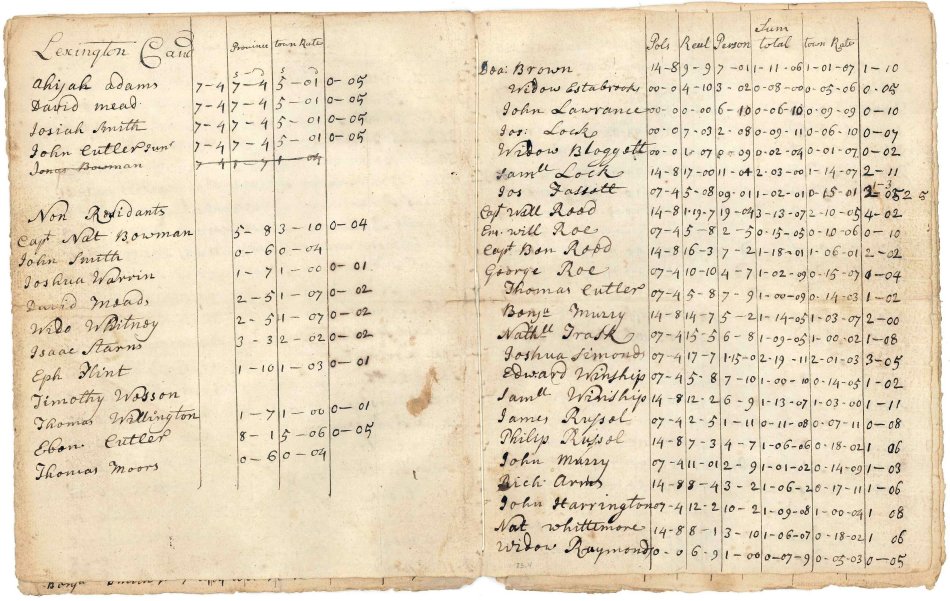 Lexington Caud
Province town Rate
s d s d
Abijah adams 7-4 7-4 5-01 0-05
David mead 7-4 7-4 5-01 0-05
Josiah Smith 7-4 7-4 5-01 0-05
John Cutler Junr 7-4 7-4 5-01 0-05
Jonas Bowman 7-4
Non Residants
Capt Nat Bowman 5-8 3-10 0-04
John Smith 0-6 0-04
Joshua Warrin 1-7 1-00 0-01
David Meads 2-5 1-07 0-02
Wido Whitney 2-5 1-07 0-02
Isaac Starns 3-3 2-02 0-02
Eph Flint 1-10 1-03 0-01
Timothy Wesson
Thomas Willington 1-7 1-00 0-01
Eben Cutler 8-1 5-06 0-05
Thomas Moors 0-6 0-04
Pols Real Person Sum total town Rate
Dea: Brown 14-8 9-9 7-01 1-11-06 1-01-07 1-10
Widow Estabrook 00-0 4-10 3-02 0-08-00 0-05-06 0-05
John Lawrance 00-0 0-00 6-10 0-06-10 0-09-09 0-10
Jos: Lock 00-0 7-03 2-08 0-09-11 0-06-10 0-07
Widow Bloggett 00-0 0-02-04 0-01-07 0-02
Samll Lock 14-8 17-00 11-04 2-03-00 1-14-07 2-11
Jos Fassett 07-4 5-08 09-01 1-02-01 0-15-01
Capt Will Reed 14-8 1-19-7 19-04 3-13-07 2-10-05 4-02
En: will Roe 07-4 5-8 2-5 0-15-05 0-10-06 0-10
Capt Ben Reed 14-8 16-3 7-2 1-18-01 1-06-01 2-02
George Roe 07-4 10-10 4-7 1-02-09 0-15-07 1-04
Thomas Cutler 07-4 5-8 7-9 1-00-09 0-14-03 1-02
Benja Murry 14-8 14-7 5-2 1-14-05 1-03-07 2-00
Nathll Trask 07-4 15-5 6-8 1-09-05 1-00-02 1-08
Joshua Simonds 07-4 17-7 1-15-0 2-19-11 2-01-03 3-05
Edward Winship 07-4 5-8 7-10 1-00-10 0-14-05 1-02
Samll Winship 14-8 12-2 6-9 1-13-07 1-03-00 1-11
James Russel 07-4 2-5 1-11 0-11-08 0-07-11 0-08
Philip Russel 14-8 7-3 4-7 1-06-06 0-18-02 1 06
John Murry 07-4 11-01 2-9 1-01-02 0-14-09 1-03
Rich Arms 14-8 8-4 3-2 1-06-2 0-17-11 1-06
John Harrington 07-4 12-2 10-2 1-09-08 1-00-04 1 08
Nat whittemore 14-8 8-1 3-10 1-06-07 0-18-02 1 06
Widow Raymond 0-0 6-9 1-00 0-07-9 0-05-03 0-05